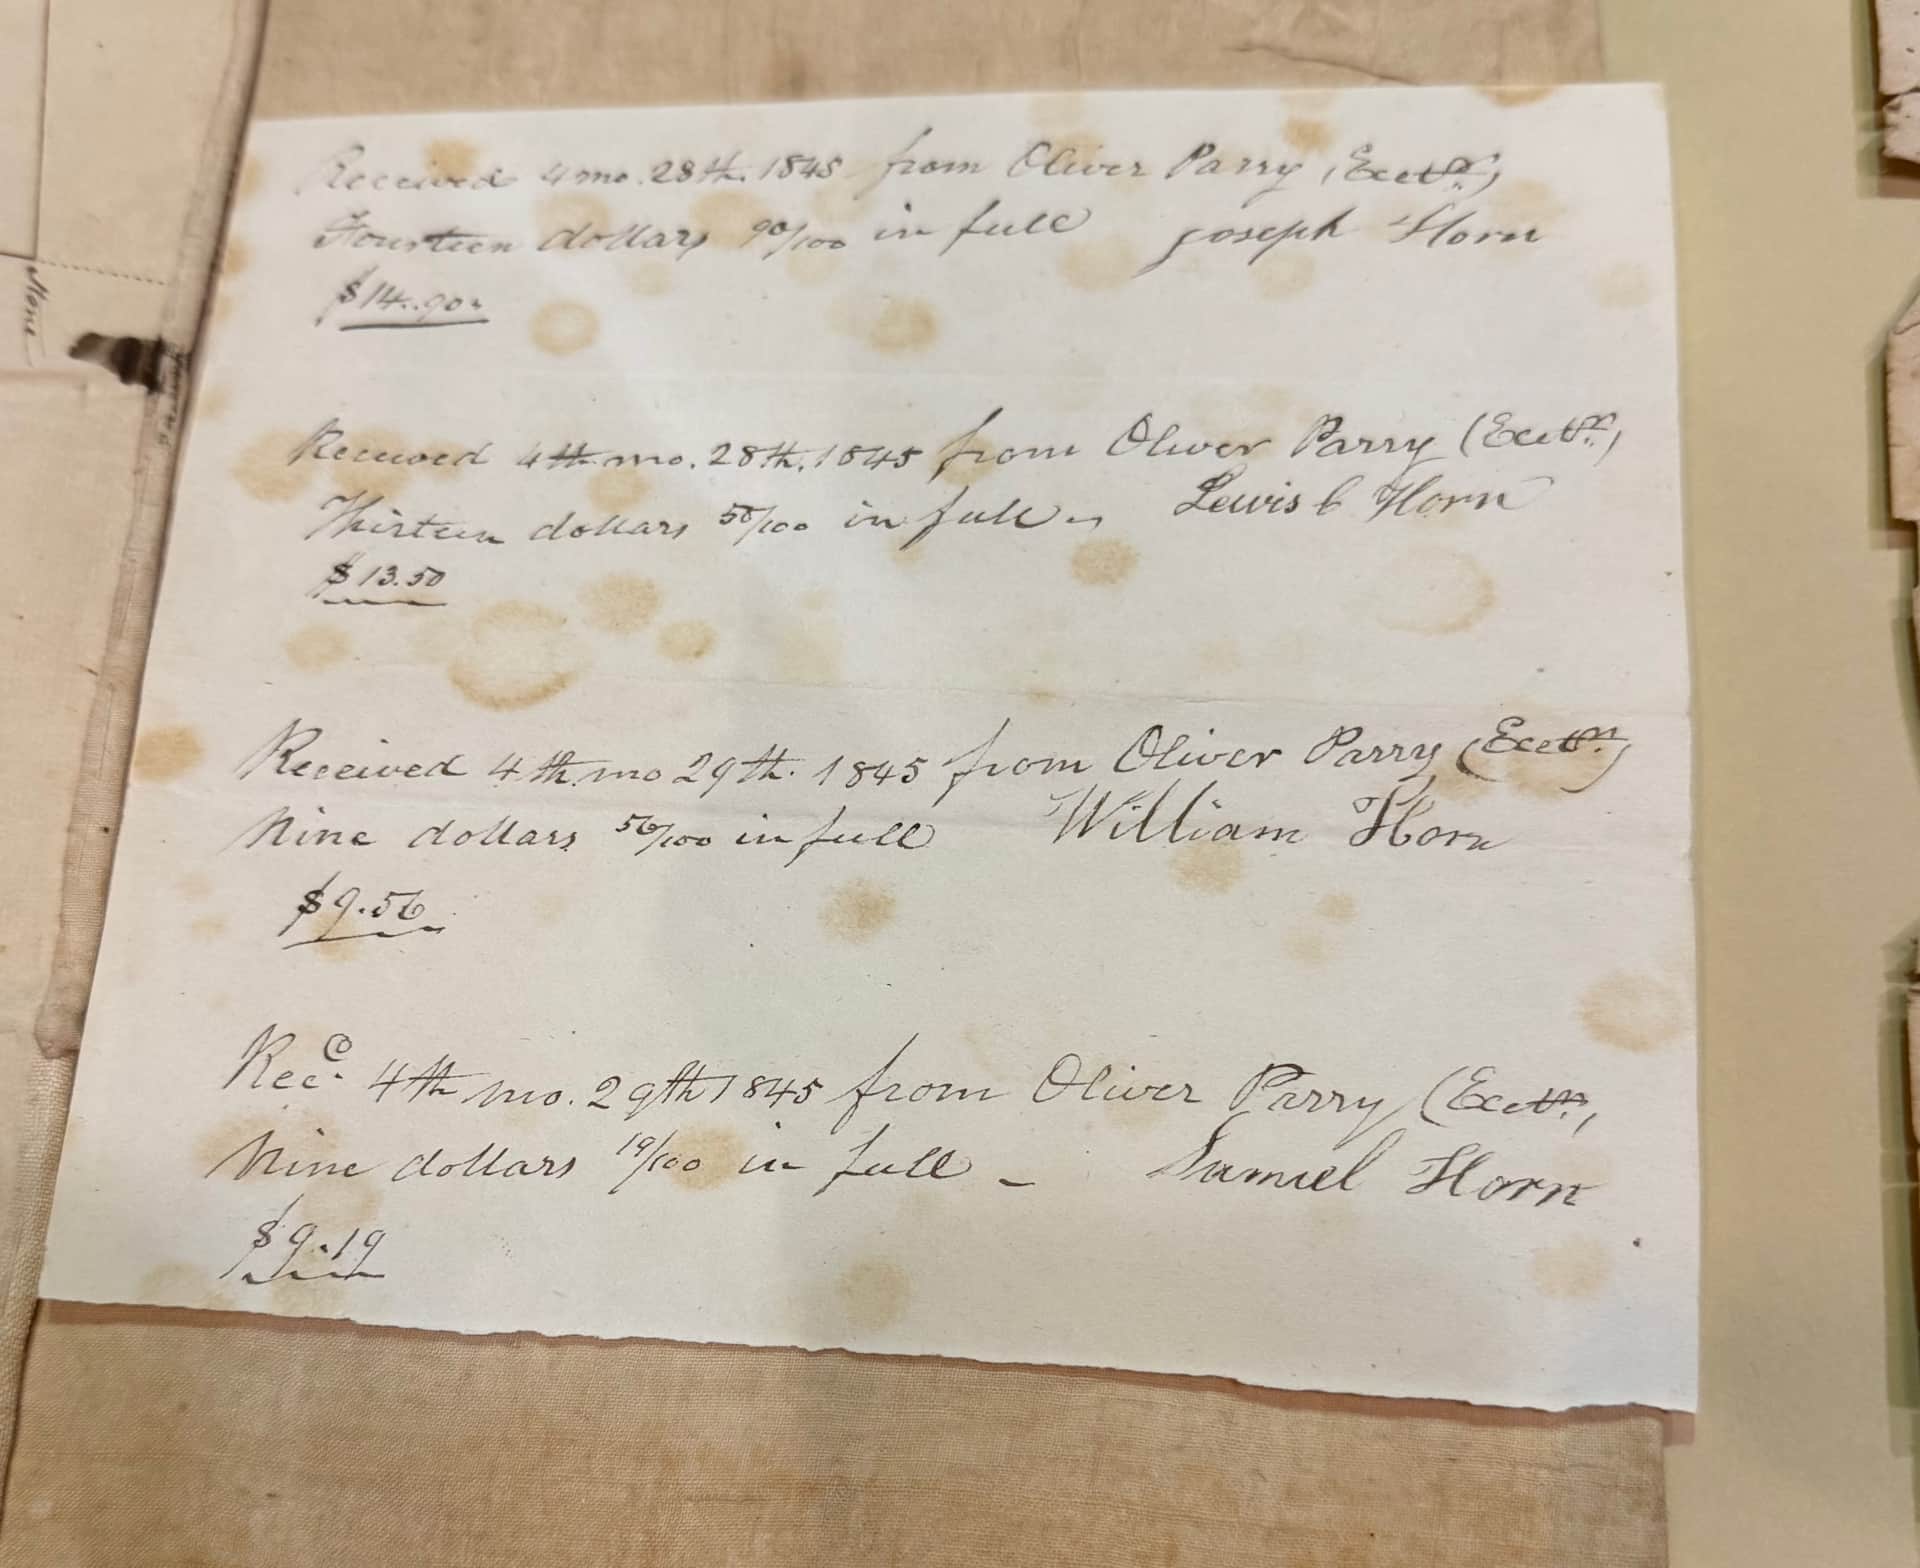 Received 4 mo. 28th. 1845 from Oliver Parry (Exetr.)
Fourteen dollars 90/100 in full Joseph Horn
$14..90.
Received 4th mo. 28th. 1845 from Oliver Parry (Exetr.)
Thirteen dollars 50/100 in full - Lewis C Horn
$13.50
Received 4th mo 29th. 1845 from Oliver Parry (Exetr.)
Nine dollars 56/100 in full William Horn
$9.56
Recd. 4th mo. 29th 1845 from Oliver Parry (Exetr.,
Nine dollars 19/100 in full - Samuel Horn
$9.19